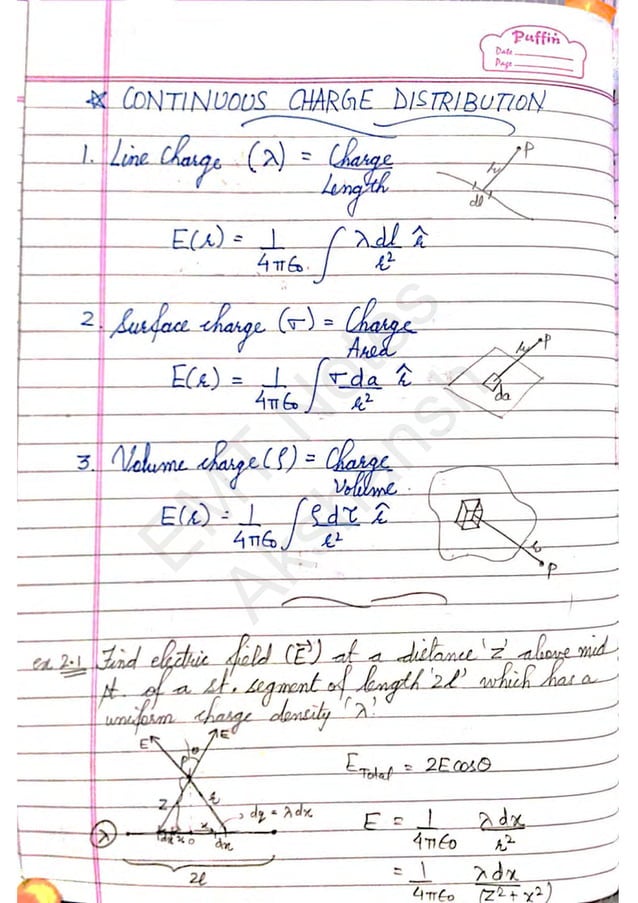 Puffin
Date
Page
☆ CONTINUOUS CHARGE DISTRIBUTION
1. Line Charge (λ) = Charge / Length
P
r
dl
E(r) = 1/4πϵ₀ ∫ λdl/r² r̂
2. Surface charge (σ) = Charge / Area
P
r
da
E(r) = 1/4πϵ₀ ∫ σda/r² r̂
3. Volume charge (ρ) = Charge / Volume
E(r) = 1/4πϵ₀ ∫ ρdτ/r² r̂
r
P
EMT Notes
Akshansh
ex 2.1 Find electric field (E⃗) at a distance 'z' above mid
pt. of a st. segment of length '2l' which has a
uniform charge density 'λ'.
E θ E
E_Total = 2Ecosθ
z r
dq = λdx
λ dx x 0 x dx
2l
E = 1/4πϵ₀ λdx/r²
= 1/4πϵ₀ λdx/(z²+x²)